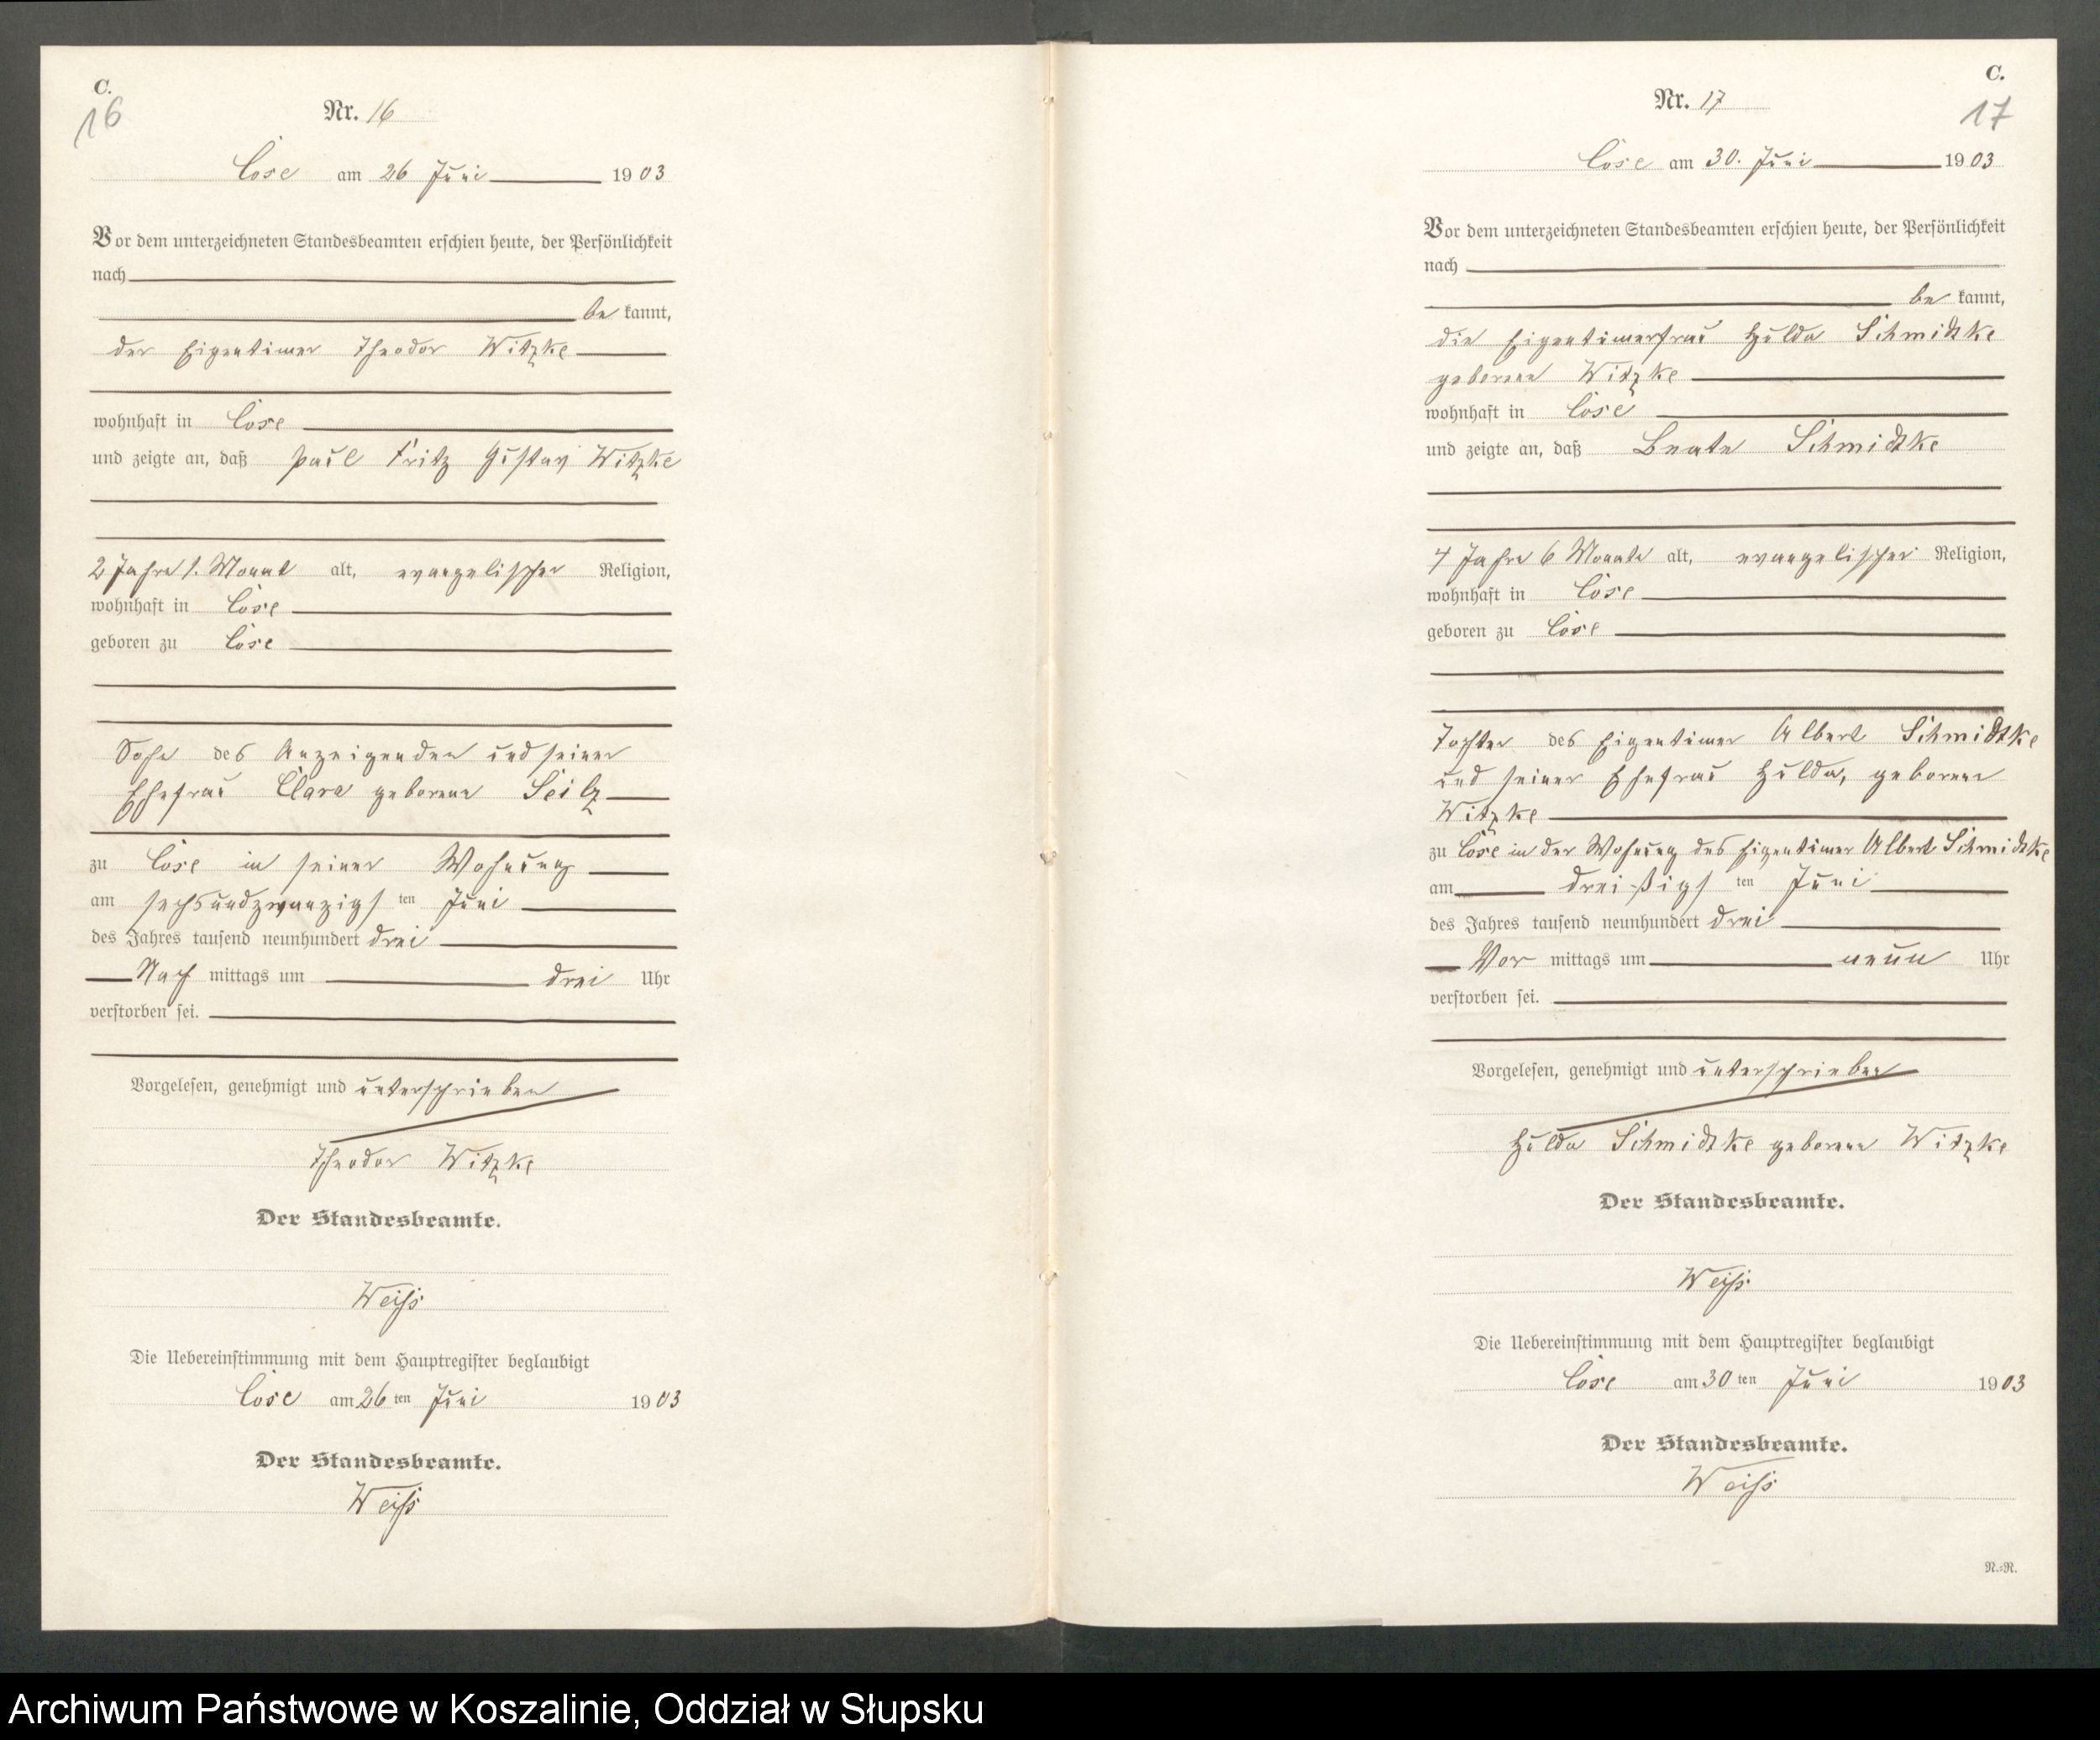 C.
16
Nr. 16
Cose am 26 Juni 1903
Vor dem unterzeichneten Standesbeamten erschien heute, der Persönlichkeit
nach
be kannt,
der Eigentümer Theodor Witzke
wohnhaft in Cose
und zeigte an, daß Paul Fritz Gustav Witzke
2 Jahre 1. Monat alt, evangelischer Religion,
wohnhaft in Cose
geboren zu Cose
Sohn des Anzeigenden und seiner
Ehefrau Clara geborene
zu Cose in seiner Wohnung
am sechsundzwanzigs ten Juni
des Jahres tausend neunhundert drei
Nach mittags um drei Uhr
verstorben sei.
Vorgelesen, genehmigt und unterschrieben
Theodor Witzke
Der Standesbeamte.
Weiß
Die Uebereinstimmung mit dem Hauptregister beglaubigt
Cose am 26 ten Juni 1903
Der Standesbeamte.
Weiß
C.
17
Nr. 17
Cose am 30. Juni 1903
Vor dem unterzeichneten Standesbeamten erschien heute, der Persönlichkeit
nach
be kannt,
die Eigentümerfrau Hulda Schmidtke
geborene Witzke
wohnhaft in Cose
und zeigte an, daß Beate Schmidtke
4 Jahre 6 Monate alt, evangelischer Religion,
wohnhaft in Cose
geboren zu Cose
Tochter des Eigentümer Albert Schmidtke
und seiner Ehefrau Hulda, geborene
Witzke
zu Cose in der Wohnung des Eigentümer Albert Schmidtke
am dreißigs ten Juni
des Jahres tausend neunhundert drei
Vor mittags um neun Uhr
verstorben sei.
Vorgelesen, genehmigt und unterschrieben
Hulda Schmidtke geborene Witzke
Der Standesbeamte.
Weiß
Die Uebereinstimmung mit dem Hauptregister beglaubigt
Cose am 30 ten Juni 1903
Der Standesbeamte.
Weiß
N.=R.
Archiwum Państwowe w Koszalinie, Oddział w Słupsku